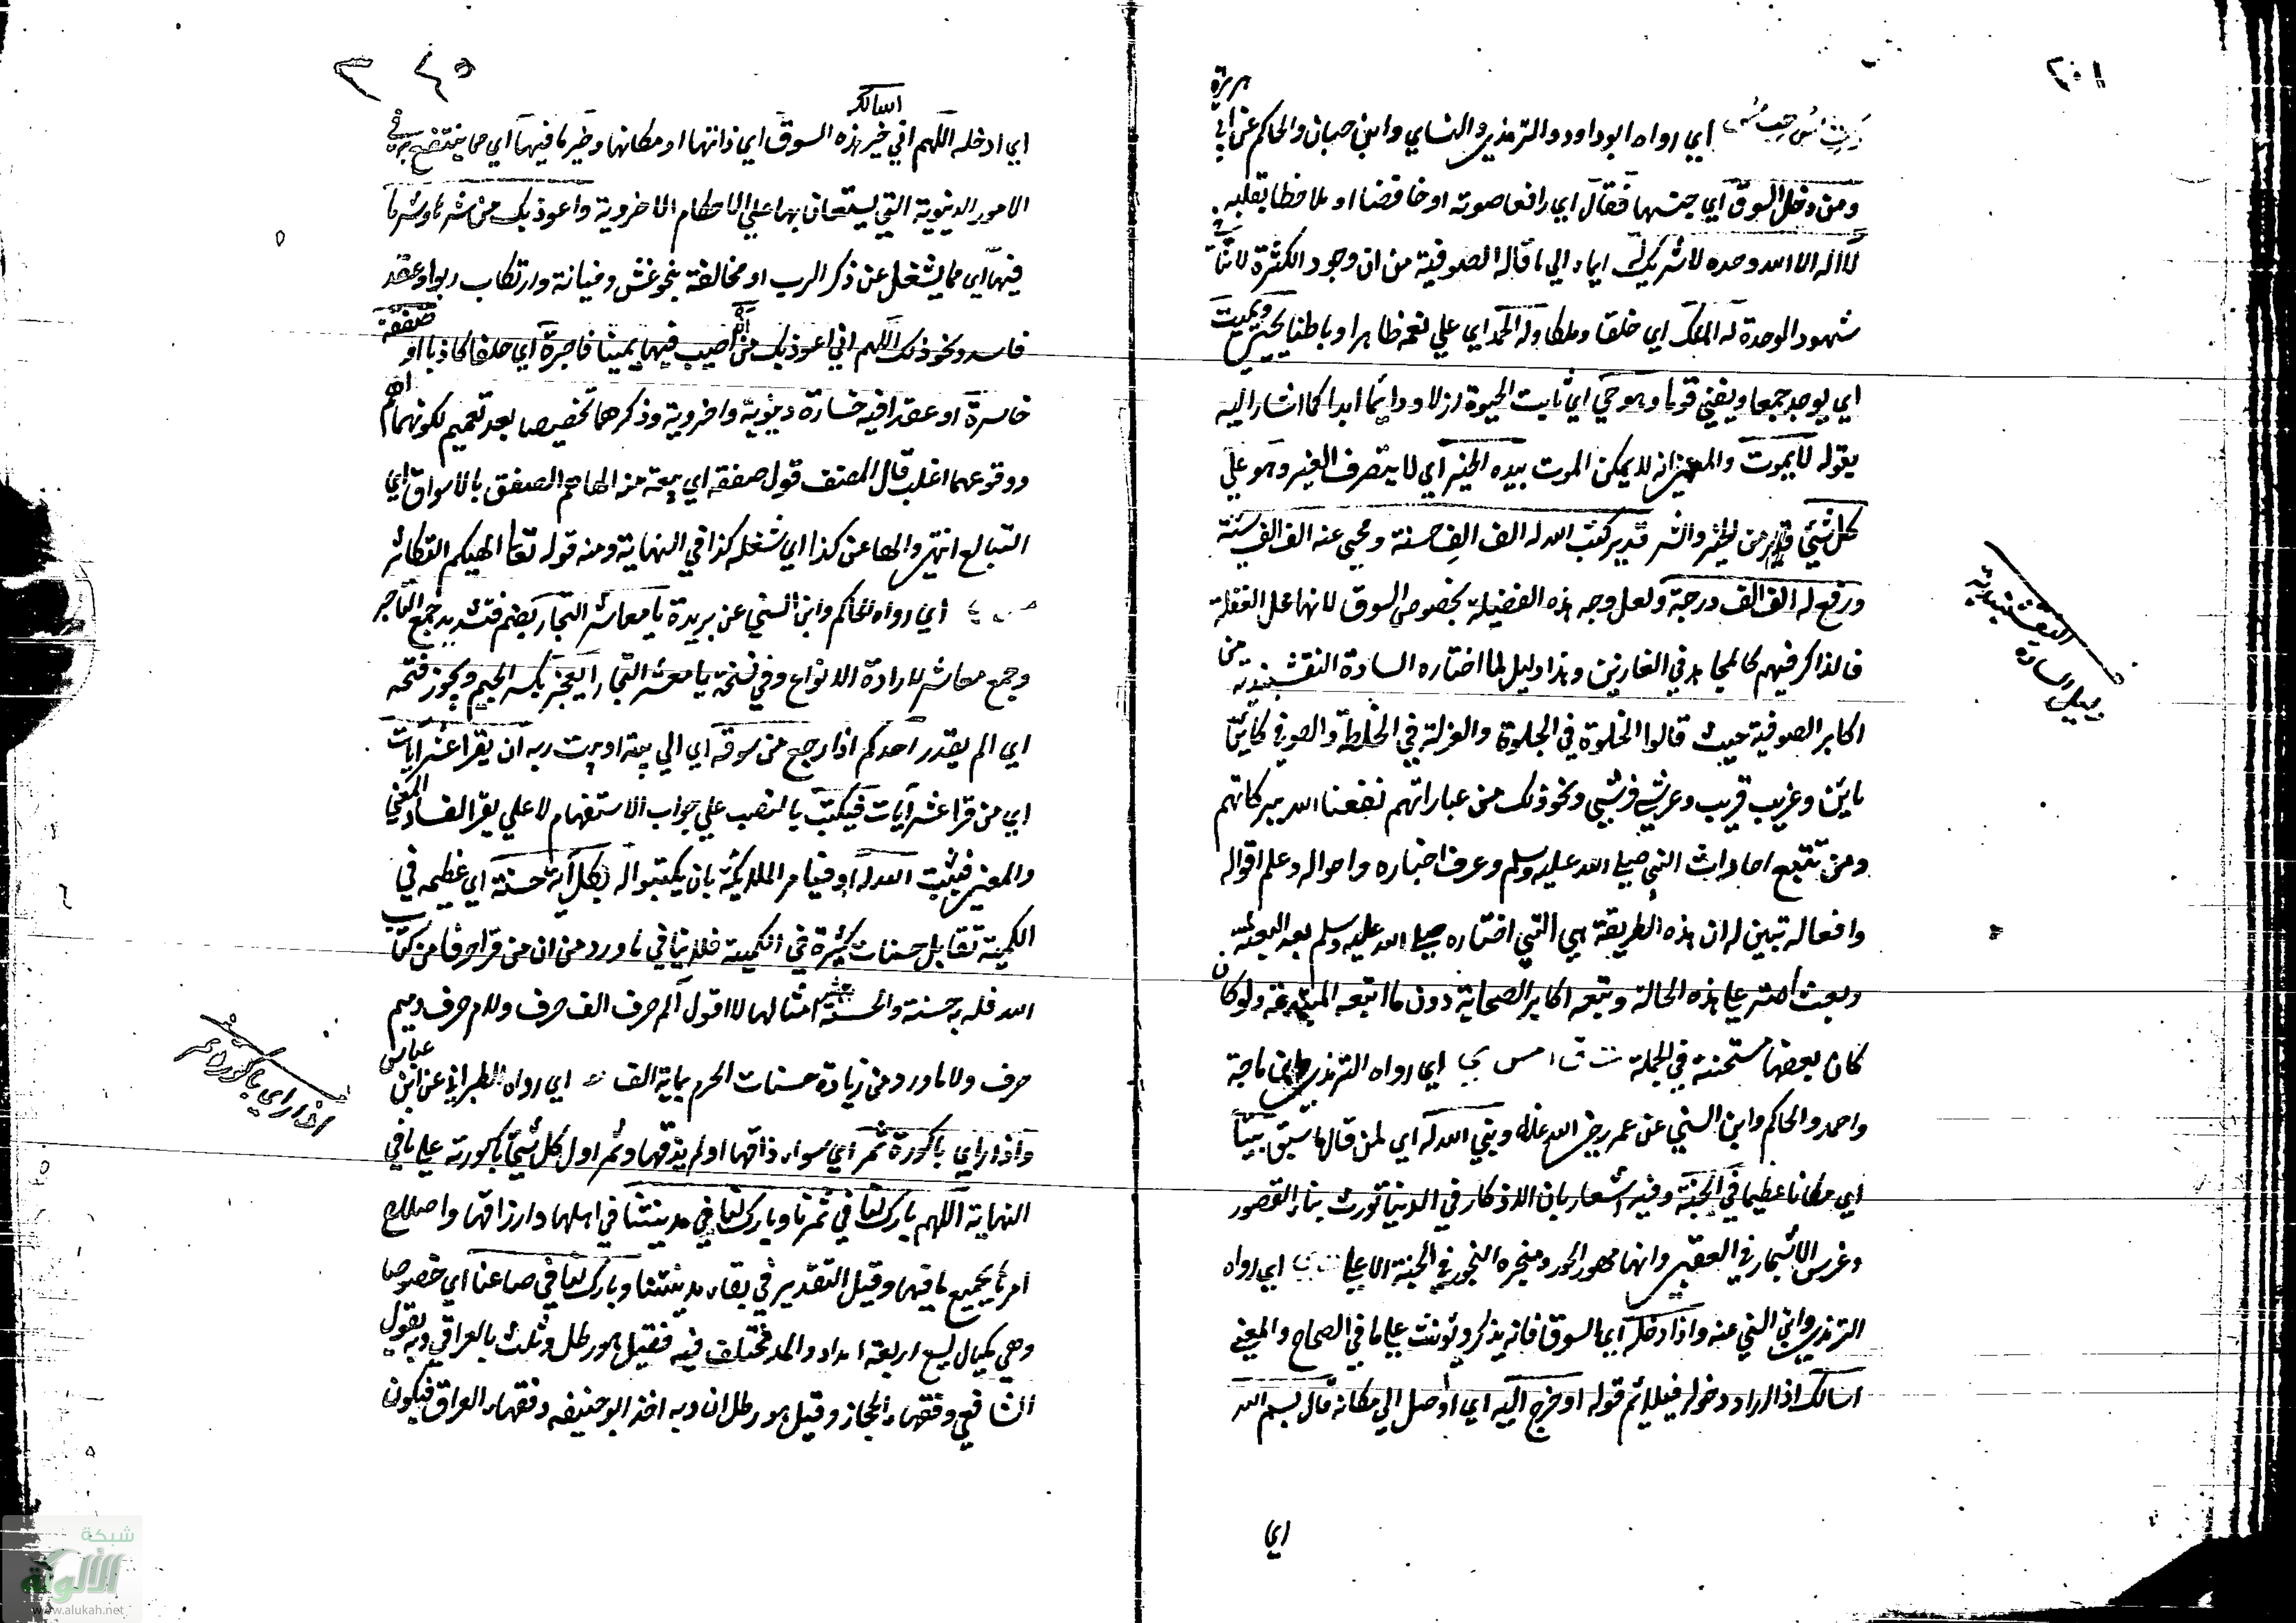 اي رواه ابو داود والترمذي والنساي وابن حبان والحاكم عن ابي هريرة
ومن دخل السوق اي جنسها فقال اي رافعا صوته او خافضا او ملاحظا بقلبه
لا اله الا الله وحده لا شريك له ايماء الي ما قاله الصوفية من ان وجود الكثرة لا ينافي
شهود الوحدة له الملك اي خلقا وملكا وله الحمد اي علي نعمه ظاهرا وباطنا يحيي ويميت
اي يوجد جمعا ويفني قوما وهو حي اي ثابت الحيوة ازلا ودائما ابدا كما اشار اليه
بقوله لا يموت والمعني انه لا يمكن الموت بيده الخير اي لا بتصرف الغير وهو علي
كل شيئ من الخير والشر قدير كتب الله له الف الف حسنة ومحي عنه الف الف سيئة
ورفع له الف الف درجة ولعل وجه هذه الفضيلة بخصوص السوق لانها محل الغفلة
فالذاكر فيهم كالمجاهد في الغارين وهذا دليل لما اختاره السادة النقشبندية من
اكابر الصوفية حيث قالوا الخلوة في الجلوة والعزلة في الخلطة والصوفي كائن
باين وغريب قريب وعرشي فرشي ونحو ذلك من عباراتهم نفعنا الله ببركاتهم
ومن تتبع احاديث النبي صلي الله عليه وسلم وعرف اخباره واحواله وعلم اقواله
وافعاله تبين له ان هذه الطريقة هي التي اختاره صلي الله عليه وسلم بعد البعثة
وبعث امته علي هذه الحالة وتبعه اكابر الصحابة دون ما ابتدعه المبتدعة ولو كان
كان بعضها مستحسنة في الجملة ت ق ا مس ي اي رواه الترمذي وابن ماجة
واحمد والحاكم وابن السني عن عمر رضي الله عنه وبني الله له اي لمن قال ما سبق بيتا
اي مكانا عظيما في الجنة وفيه اشعار بان الاذكار في الدنيا تورث بناء القصور
وغرس الاشجار في العقبي وانها مهور الحور في الجنة الاعلي ت ي اي رواه
الترمذي وابن السني عنه واذا دخله اي السوق فانه يذكر ويونث علي ما في الصحاح والمعني
اذا اراد دخوله فيلائم قوله او خرج اليه اي او صل الي مكانه قال بسم الله
اي
السادة النقشبندية
اي ادخله اللهم اني اسالك خير هذه السوق اي ذاتها او مكانها وخير ما فيها اي مما ينتفع به في
الامور الدنيوية التي يستعان بها علي الاحكام الاخروية واعوذ بك من شرها وشر ما
فيها اي مما يشغل عن ذكر الرب او مخالفة بنحو غش وخيانة وارتكاب ربوا وعقد
فاسد ونحو ذلك اللهم اني اعوذ بك من ان اصيب فيها يمينا فاجرة اي حلفا كاذبا او صفقة
خاسرة او عقدا فيه خسارة دينوية واخروية وذكرهما تخصيص بعد تعميم لكونهما اهم
ووقوعهما اغلب قال المصنف قوله صفقة اي بيعة منه الهاهم الصفق بالاسواق اي
التبايع انتهي والهاه عن كذا اي شغله كذا في النهاية ومنه قوله تعا الهيكم التكاثر
اي رواه الحاكم وابن السني عن بريدة يا معاشر التجار بضم فتشديد جمع التاجر
وجمع معاشر لارادة الانواع وفي نسخة يا معشر التجار ايعجز بكسر الجيم ويجوز فتحه
اي الم يقدر احدكم اذا رجع من سوقه اي الي بيته او بيت ربه ان يقرا عشر آيات
اي من قرا عشر آيات فيكتب بالنصب علي جواب الاستفهام لا علي يقرا لفساد المعني
والمعني فيثبت الله له او فيامر الملائكة بان يكتبوا له بكل آية حسنة اي عظيمة في
الكمية تقابل حسنات كثيرة في الكمية فلا ينافي ما ورد من ان من قرا حرفا من كتاب
الله فله به حسنة والحسنة بعشر امثالها لا اقول الم حرف الف حرف ولام حرف وميم
حرف ولا ما ورد من زيادة حسنات الحرم بماية الف ط اي رواه الطبراني عن ابن عباس
واذا راي باكورة ثمر اي سواء ذاقها او لم يذقها وثمر اول كل شيئ باكورته علي ما في
النهاية اللهم بارك لنا في ثمرنا وبارك لنا في مدينتنا في اهلها وارزاقها واصلاح
امرنا بجميع ما فيها وقيل التقدير في بقاء مدينتنا وبارك لنا في صاعنا اي خصوصا
وهي مكيال يسع اربعة امداد والمد مختلف فيه فقيل هو رطل وثلث بالعراقي وبه يقول
الشافعي وفقهاء الحجاز وقيل هو رطلان وبه اخذ ابو حنيفه وفقهاء العراق فيكون
اذا راي باكورة ثمر
شبكة
الألوكة
www.alukah.net